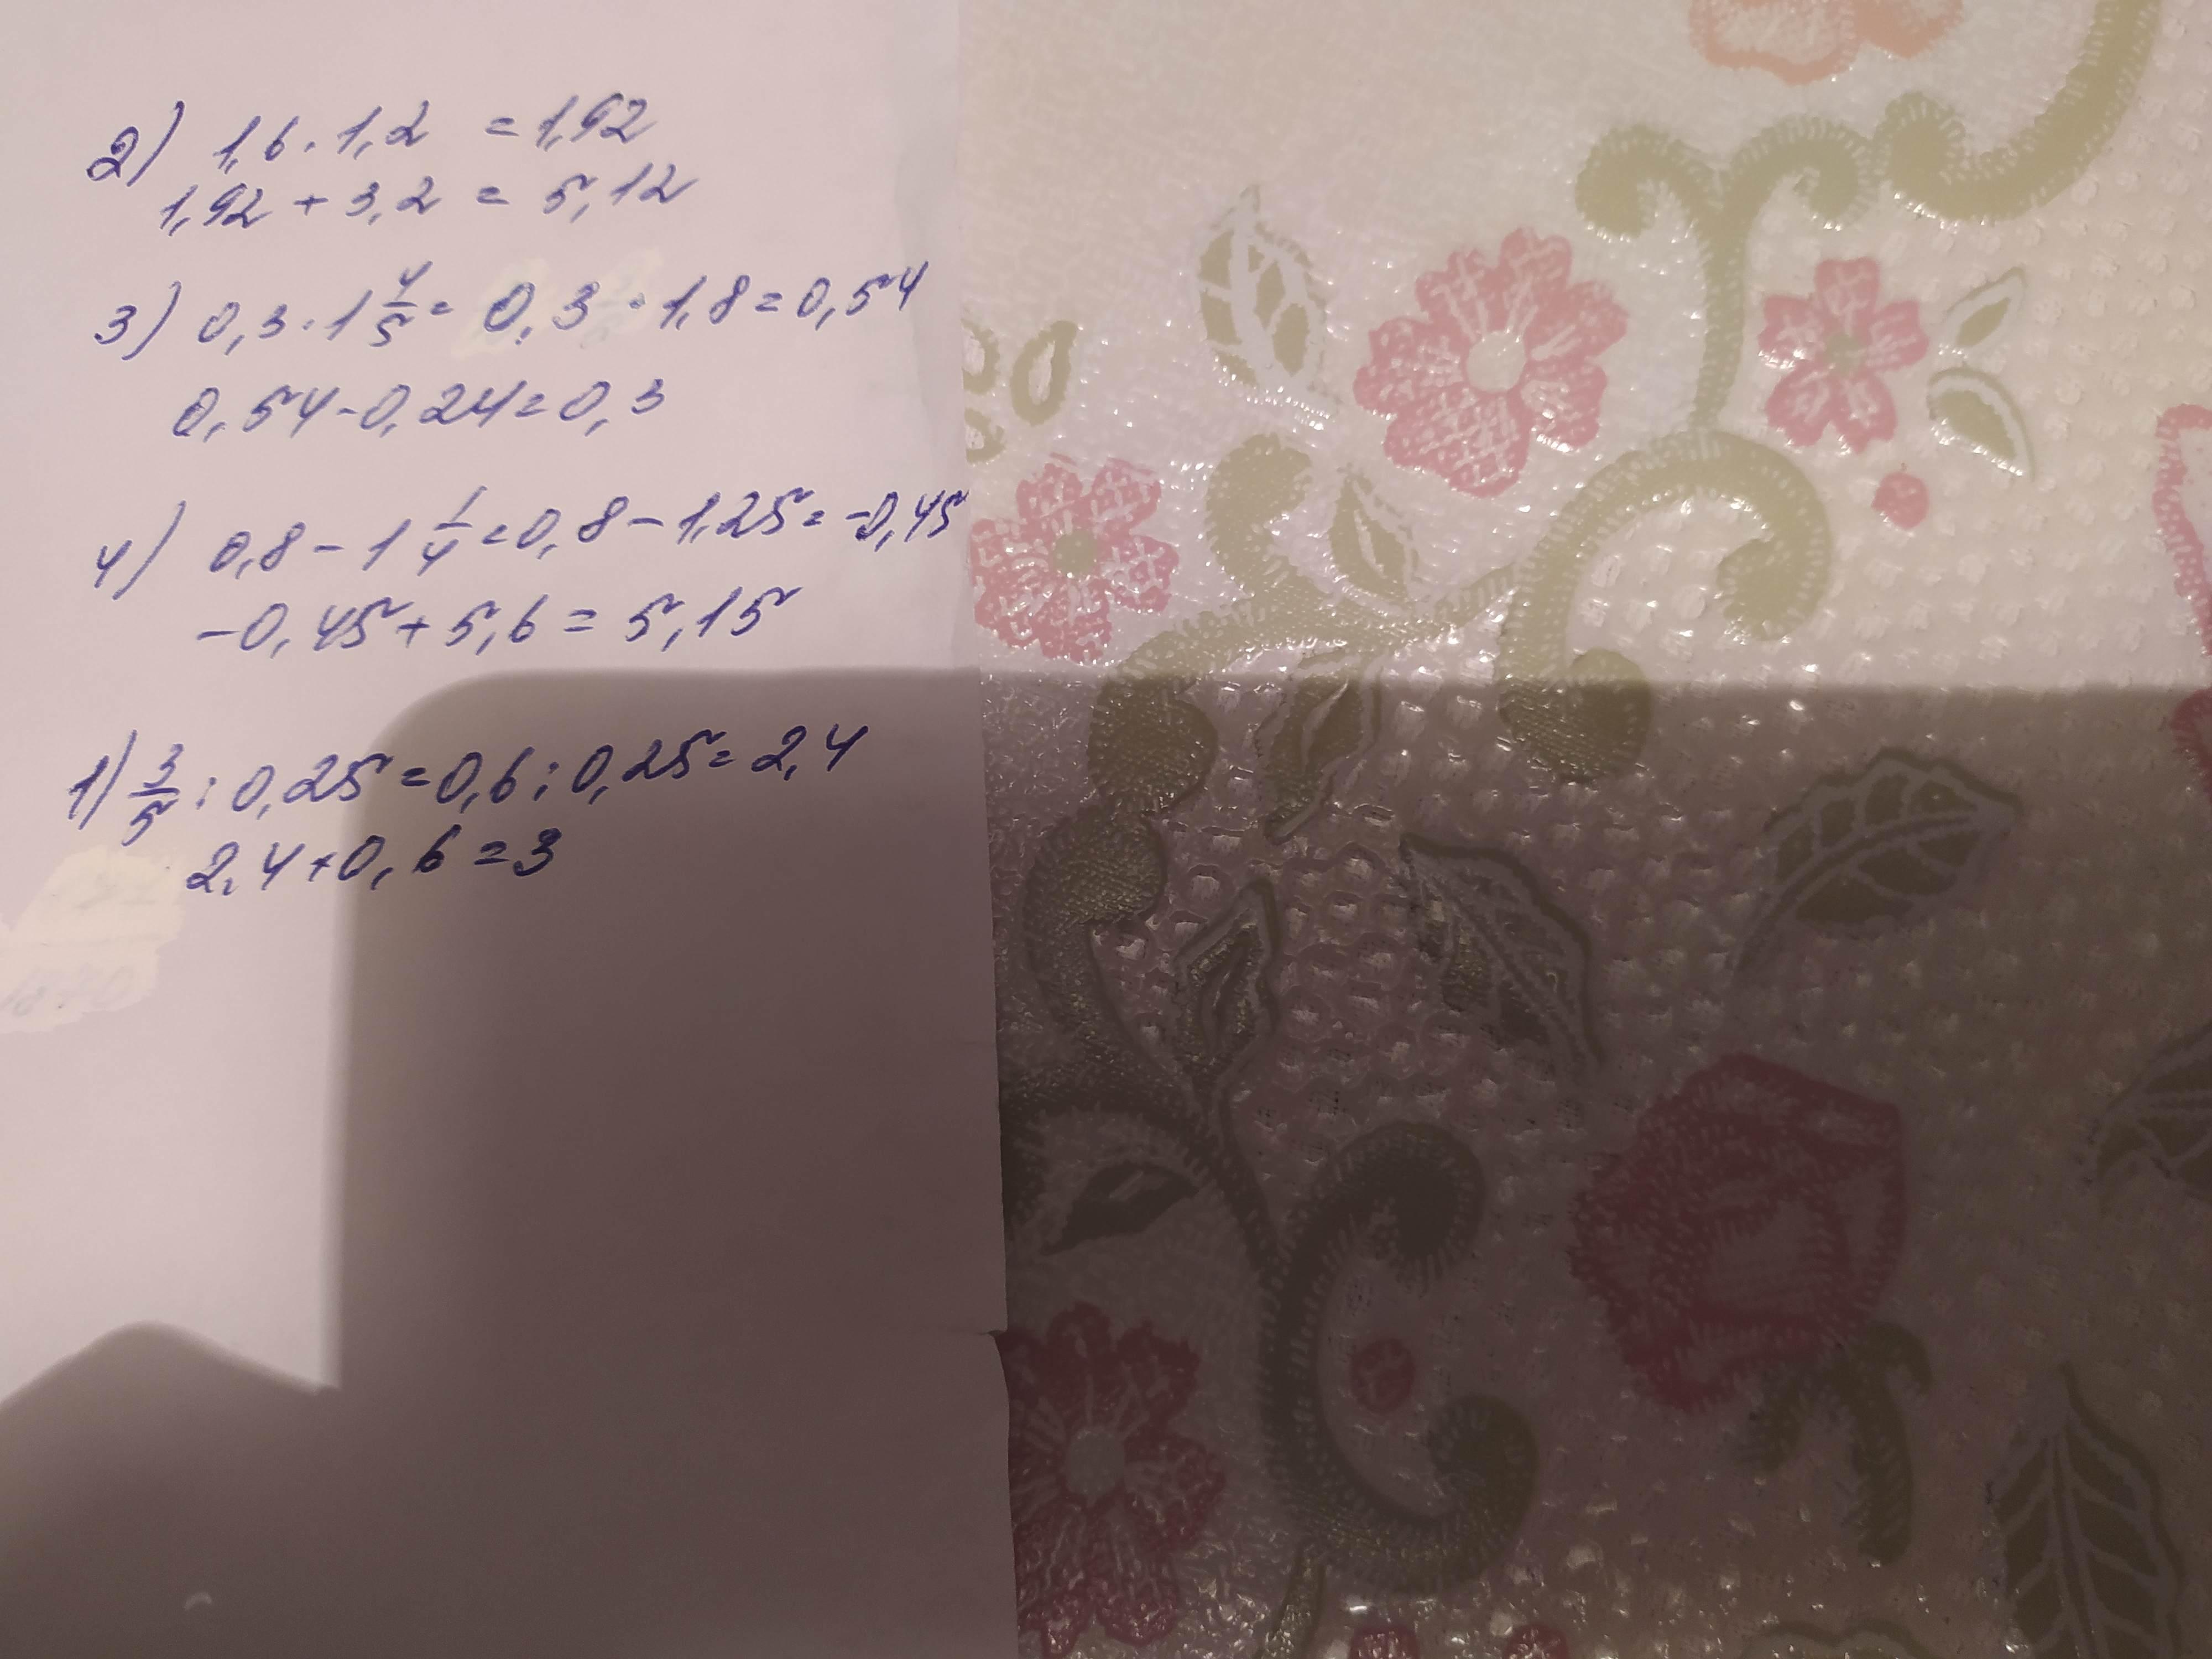 2) 1,6 · 1,2 = 1,92
1,92 + 3,2 = 5,12
3) 0,3 · 1 4/5 = 0,3 · 1,8 = 0,54
0,54 - 0,24 = 0,3
4) 0,8 - 1 1/4 = 0,8 - 1,25 = -0,45
-0,45 + 5,6 = 5,15
1) 3/5 : 0,25 = 0,6 : 0,25 = 2,4
2,4 + 0,6 = 3